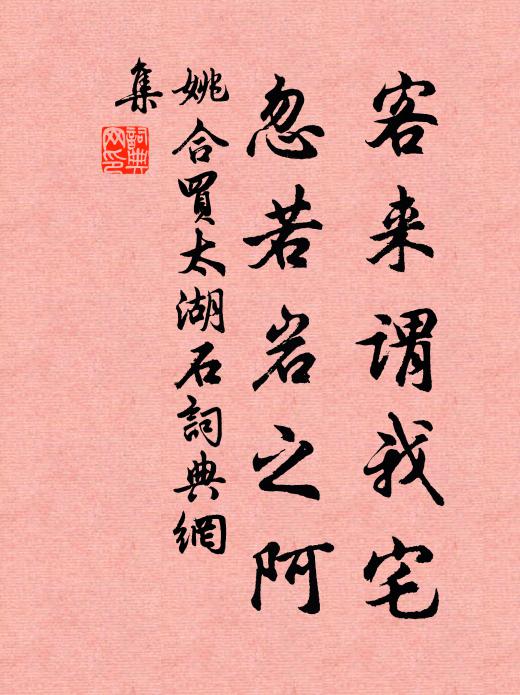 客来謂我宅
忽若岩之阿
姚合買太湖石詞典網
集
詞典
网印